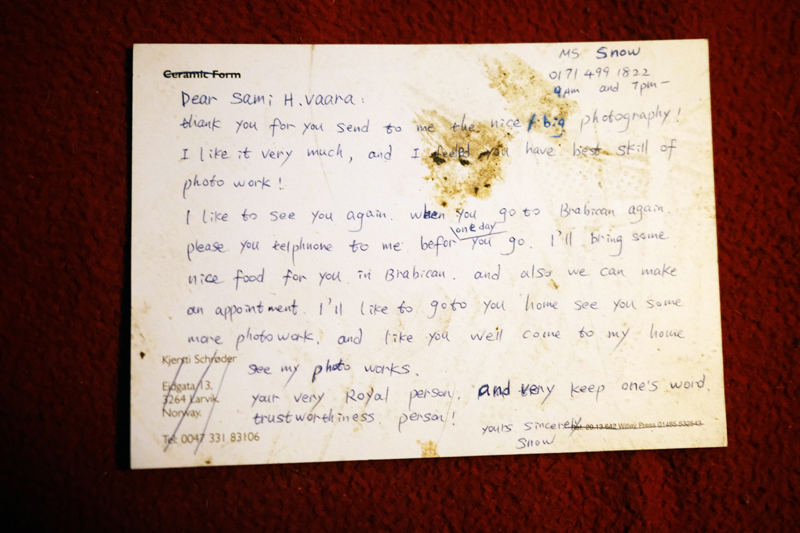 Ceramic Form
MS Snow
0171 499 1822
9am and 7pm—
Dear Sami H. Vaara:
thank you for you send to me the nice / big photography!
I like it very much, and I you have best skill of
photo work!
I like to see you again. when you go to Brabican again.
please you telphnone to me befor one day you go. I'll bring some
nice food for you in Brabican. and also we can make
an appointment. I'll like to goto you home see you some
more photowork. and like you well come to my home
see my photo works.
your very Royal person. and very keep one's word.
trustworthiness person!
yours sincerely
Snow
Kjersti Schrøder
Eidgata 13,
3264 Larvik
Norway.
Tel: 0047 331 83106
Press 01485 532543